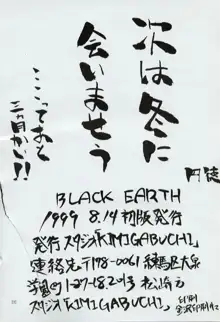 次は冬に
会いませう
ここってあと
三ヶ月かい!!
円徒
BLACK EARTH
1999 8.14 初版発行
発行スタジオ「KIMIGABUCHI」
連絡先〒178-0061 練馬区大泉
学園町1-27-18 201号
スタジオ「KIMIGABUCHI」
印刷